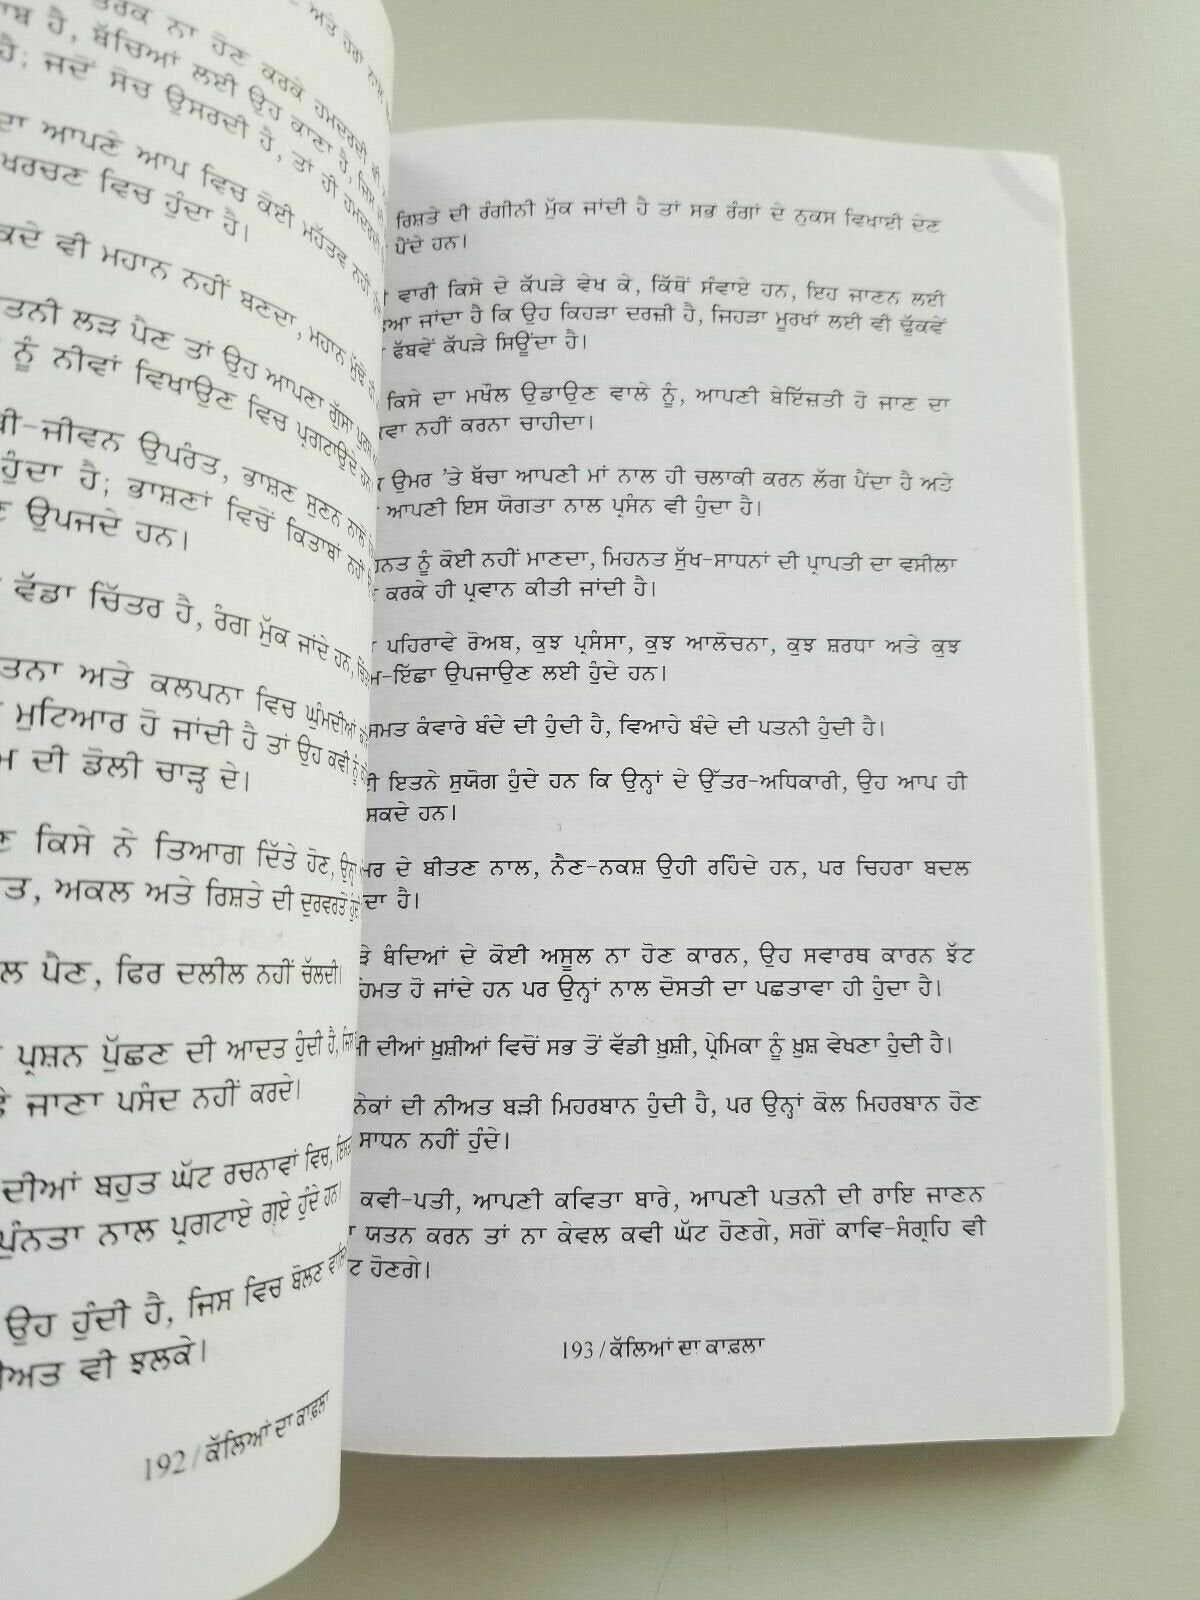 ਅਤੇ ਹੋਰਾਂ ਨਾਲ
ਤਰਕ ਨਾ ਹੋਣ ਕਰਕੇ ਹਮਦਰਦੀ ਦੀ
ਹੈ, ਬੱਚਿਆਂ ਲਈ ਉਹ ਕਾਣਾ ਹੈ, ਜਿਸ
ਹੈ; ਜਦੋਂ ਸੋਚ ਉਸਰਦੀ ਹੈ, ਤਾਂ ਹੀ ਹਮਦਰਦੀ
ਦਾ ਆਪਣੇ ਆਪ ਵਿਚ ਕੋਈ ਮਹੱਤਵ ਨਹੀਂ
ਖਰਚਣ ਵਿਚ ਹੁੰਦਾ ਹੈ।
ਕਦੇ ਵੀ ਮਹਾਨ ਨਹੀਂ ਬਣਦਾ, ਮਹਾਨ ਮੁੱਢੋਂ ਹੀ
ਤਨੀ ਲੜ ਪੈਣ ਤਾਂ ਉਹ ਆਪਣਾ ਗੁੱਸਾ
ਨੂੰ ਨੀਵਾਂ ਵਿਖਾਉਣ ਵਿਚ ਪ੍ਰਗਟਾਉਂਦੇ ਹਨ
ਥੀ-ਜੀਵਨ ਉਪਰੰਤ, ਭਾਸ਼ਣ ਸੁਣਨ ਨਾਲੋਂ
ਹੁੰਦਾ ਹੈ; ਭਾਸ਼ਣਾਂ ਵਿਚੋਂ ਕਿਤਾਬਾਂ ਨਹੀਂ
ਉਪਜਦੇ ਹਨ।
ਵੱਡਾ ਚਿੱਤਰ ਹੈ, ਰੰਗ ਮੁੱਕ ਜਾਂਦੇ ਹਨ,
ਤਨਾ ਅਤੇ ਕਲਪਨਾ ਵਿਚ ਘੁੰਮਦੀਆਂ
ਮੁਟਿਆਰ ਹੋ ਜਾਂਦੀ ਹੈ ਤਾਂ ਉਹ ਕਵੀ ਨੂੰ
ਮ ਦੀ ਡੋਲੀ ਚਾੜ੍ਹ ਦੇ।
ਣ ਕਿਸੇ ਨੇ ਤਿਆਗ ਦਿੱਤੇ ਹੋਣ, ਉਨ੍ਹਾਂ
ਤ, ਅਕਲ ਅਤੇ ਰਿਸ਼ਤੇ ਦੀ ਦੁਰਵਰਤੋਂ ਹੁੰਦੀ
ਲ ਪੈਣ, ਫਿਰ ਦਲੀਲ ਨਹੀਂ ਚੱਲਦੀ।
ਪ੍ਰਸ਼ਨ ਪੁੱਛਣ ਦੀ ਆਦਤ ਹੁੰਦੀ ਹੈ,
ਛੇ ਜਾਣਾ ਪਸੰਦ ਨਹੀਂ ਕਰਦੇ।
ਦੀਆਂ ਬਹੁਤ ਘੱਟ ਰਚਨਾਵਾਂ ਵਿਚ,
ਪੁੰਨਤਾ ਨਾਲ ਪ੍ਰਗਟਾਏ ਗਏ ਹੁੰਦੇ ਹਨ।
ਉਹ ਹੁੰਦੀ ਹੈ, ਜਿਸ ਵਿਚ ਬੋਲਣ
ੀਅਤ ਵੀ ਝਲਕੇ।
192/ਕੱਲਿਆਂ ਦਾ ਕਾਫ਼ਲਾ
ਰਿਸ਼ਤੇ ਦੀ ਰੰਗੀਨੀ ਮੁੱਕ ਜਾਂਦੀ ਹੈ ਤਾਂ ਸਭ ਰੰਗਾਂ ਦੇ ਨੁਕਸ ਵਿਖਾਈ ਦੇਣ
ਪੈਂਦੇ ਹਨ।
ਵਾਰੀ ਕਿਸੇ ਦੇ ਕੱਪੜੇ ਵੇਖ ਕੇ, ਕਿੱਥੋਂ ਸੰਵਾਏ ਹਨ, ਇਹ ਜਾਣਨ ਲਈ
ਆ ਜਾਂਦਾ ਹੈ ਕਿ ਉਹ ਕਿਹੜਾ ਦਰਜ਼ੀ ਹੈ, ਜਿਹੜਾ ਮੂਰਖਾਂ ਲਈ ਵੀ ਢੁੱਕਵੇਂ
ਫੱਬਵੇਂ ਕੱਪੜੇ ਸਿਊਂਦਾ ਹੈ।
ਕਿਸੇ ਦਾ ਮਖੌਲ ਉਡਾਉਣ ਵਾਲੇ ਨੂੰ, ਆਪਣੀ ਬੇਇੱਜ਼ਤੀ ਹੋ ਜਾਣ ਦਾ
ਵਾ ਨਹੀਂ ਕਰਨਾ ਚਾਹੀਦਾ।
ਕ ਉਮਰ 'ਤੇ ਬੱਚਾ ਆਪਣੀ ਮਾਂ ਨਾਲ ਹੀ ਚਲਾਕੀ ਕਰਨ ਲੱਗ ਪੈਂਦਾ ਹੈ ਅਤੇ
ਆਪਣੀ ਇਸ ਯੋਗਤਾ ਨਾਲ ਪ੍ਰਸੰਨ ਵੀ ਹੁੰਦਾ ਹੈ।
ਹਨਤ ਨੂੰ ਕੋਈ ਨਹੀਂ ਮਾਣਦਾ, ਮਿਹਨਤ ਸੁੱਖ-ਸਾਧਨਾਂ ਦੀ ਪ੍ਰਾਪਤੀ ਦਾ ਵਸੀਲਾ
ਕਰਕੇ ਹੀ ਪ੍ਰਵਾਨ ਕੀਤੀ ਜਾਂਦੀ ਹੈ।
ਪਹਿਰਾਵੇ ਰੋਅਬ, ਕੁਝ ਪ੍ਰਸੰਸਾ, ਕੁਝ ਆਲੋਚਨਾ, ਕੁਝ ਸ਼ਰਧਾ ਅਤੇ ਕੁਝ
ਮ-ਇੱਛਾ ਉਪਜਾਉਣ ਲਈ ਹੁੰਦੇ ਹਨ।
ਸਮਤ ਕੰਵਾਰੇ ਬੰਦੇ ਦੀ ਹੁੰਦੀ ਹੈ, ਵਿਆਹੇ ਬੰਦੇ ਦੀ ਪਤਨੀ ਹੁੰਦੀ ਹੈ।
ਈ ਇਤਨੇ ਸੁਯੋਗ ਹੁੰਦੇ ਹਨ ਕਿ ਉਨ੍ਹਾਂ ਦੇ ਉੱਤਰ-ਅਧਿਕਾਰੀ, ਉਹ ਆਪ ਹੀ
ਸਕਦੇ ਹਨ।
ਮਰ ਦੇ ਬੀਤਣ ਨਾਲ, ਨੈਣ-ਨਕਸ਼ ਉਹੀ ਰਹਿੰਦੇ ਹਨ, ਪਰ ਚਿਹਰਾ ਬਦਲ
ਦਾ ਹੈ।
ੜੇ ਬੰਦਿਆਂ ਦੇ ਕੋਈ ਅਸੂਲ ਨਾ ਹੋਣ ਕਾਰਨ, ਉਹ ਸਵਾਰਥ ਕਾਰਨ ਝੱਟ
ਹਿਮਤ ਹੋ ਜਾਂਦੇ ਹਨ ਪਰ ਉਨ੍ਹਾਂ ਨਾਲ ਦੋਸਤੀ ਦਾ ਪਛਤਾਵਾ ਹੀ ਹੁੰਦਾ ਹੈ।
ਮੀ ਦੀਆਂ ਖ਼ੁਸ਼ੀਆਂ ਵਿਚੋਂ ਸਭ ਤੋਂ ਵੱਡੀ ਖ਼ੁਸ਼ੀ, ਪ੍ਰੇਮਿਕਾ ਨੂੰ ਖ਼ੁਸ਼ ਵੇਖਣਾ ਹੁੰਦੀ ਹੈ।
ਨੇਕਾਂ ਦੀ ਨੀਅਤ ਬੜੀ ਮਿਹਰਬਾਨ ਹੁੰਦੀ ਹੈ, ਪਰ ਉਨ੍ਹਾਂ ਕੋਲ ਮਿਹਰਬਾਨ ਹੋਣ
ਸਾਧਨ ਨਹੀਂ ਹੁੰਦੇ।
ਕਵੀ-ਪਤੀ, ਆਪਣੀ ਕਵਿਤਾ ਬਾਰੇ, ਆਪਣੀ ਪਤਨੀ ਦੀ ਰਾਇ ਜਾਣਨ
ਾ ਯਤਨ ਕਰਨ ਤਾਂ ਨਾ ਕੇਵਲ ਕਵੀ ਘੱਟ ਹੋਣਗੇ, ਸਗੋਂ ਕਾਵਿ-ਸੰਗ੍ਰਹਿ ਵੀ
ਟ ਹੋਣਗੇ।
193/ਕੱਲਿਆਂ ਦਾ ਕਾਫ਼ਲਾ